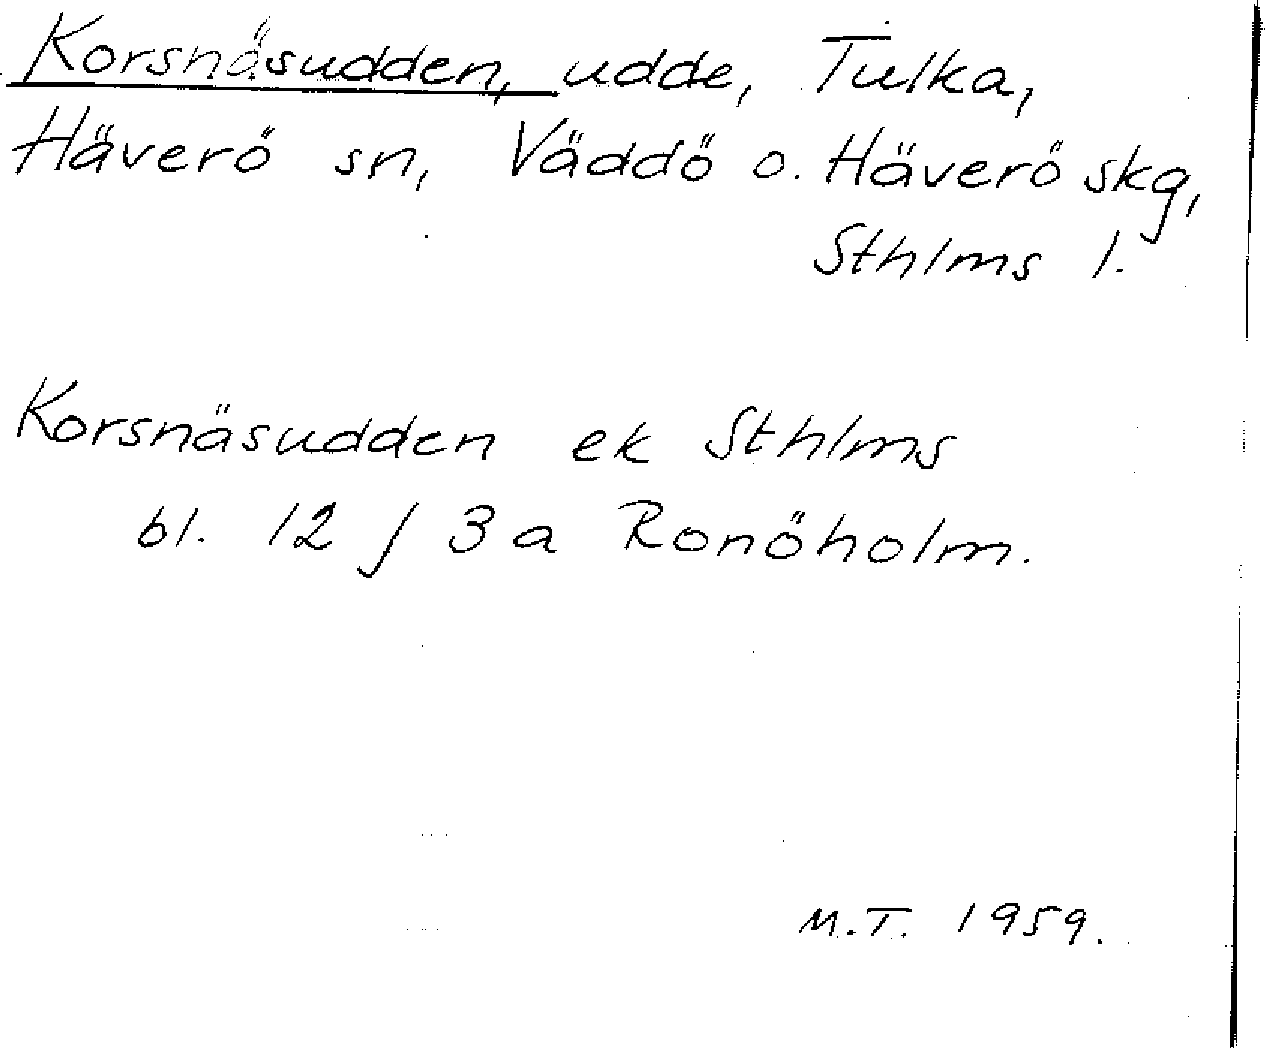 Korsnäsudden, udde, Tulka,
Häverö sn, Väddö o. Häverö skg,
Sthlms l.
Korsnäsudden ek Sthlms
bl. 12 J 3a Ronöholm.
M.T. 1959.